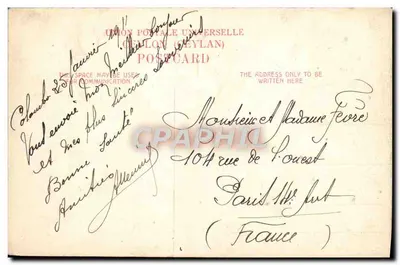 UNION POSTALE UNIVERSELLE
(CEYLON CEYLAN)
POSTCARD
THIS SPACE MAY BE USED
FOR COMMUNICATION
THE ADDRESS ONLY TO BE
WRITTEN HERE
Colombo 25 Janvier
Vous envoie mon meilleur bonjour
et mes plus sincères
Bonne Santé
Amitiés
Monsieur et Madame Fèvre
104 rue de l'ouest
Paris 14e
(France)
CPARAMA.COM